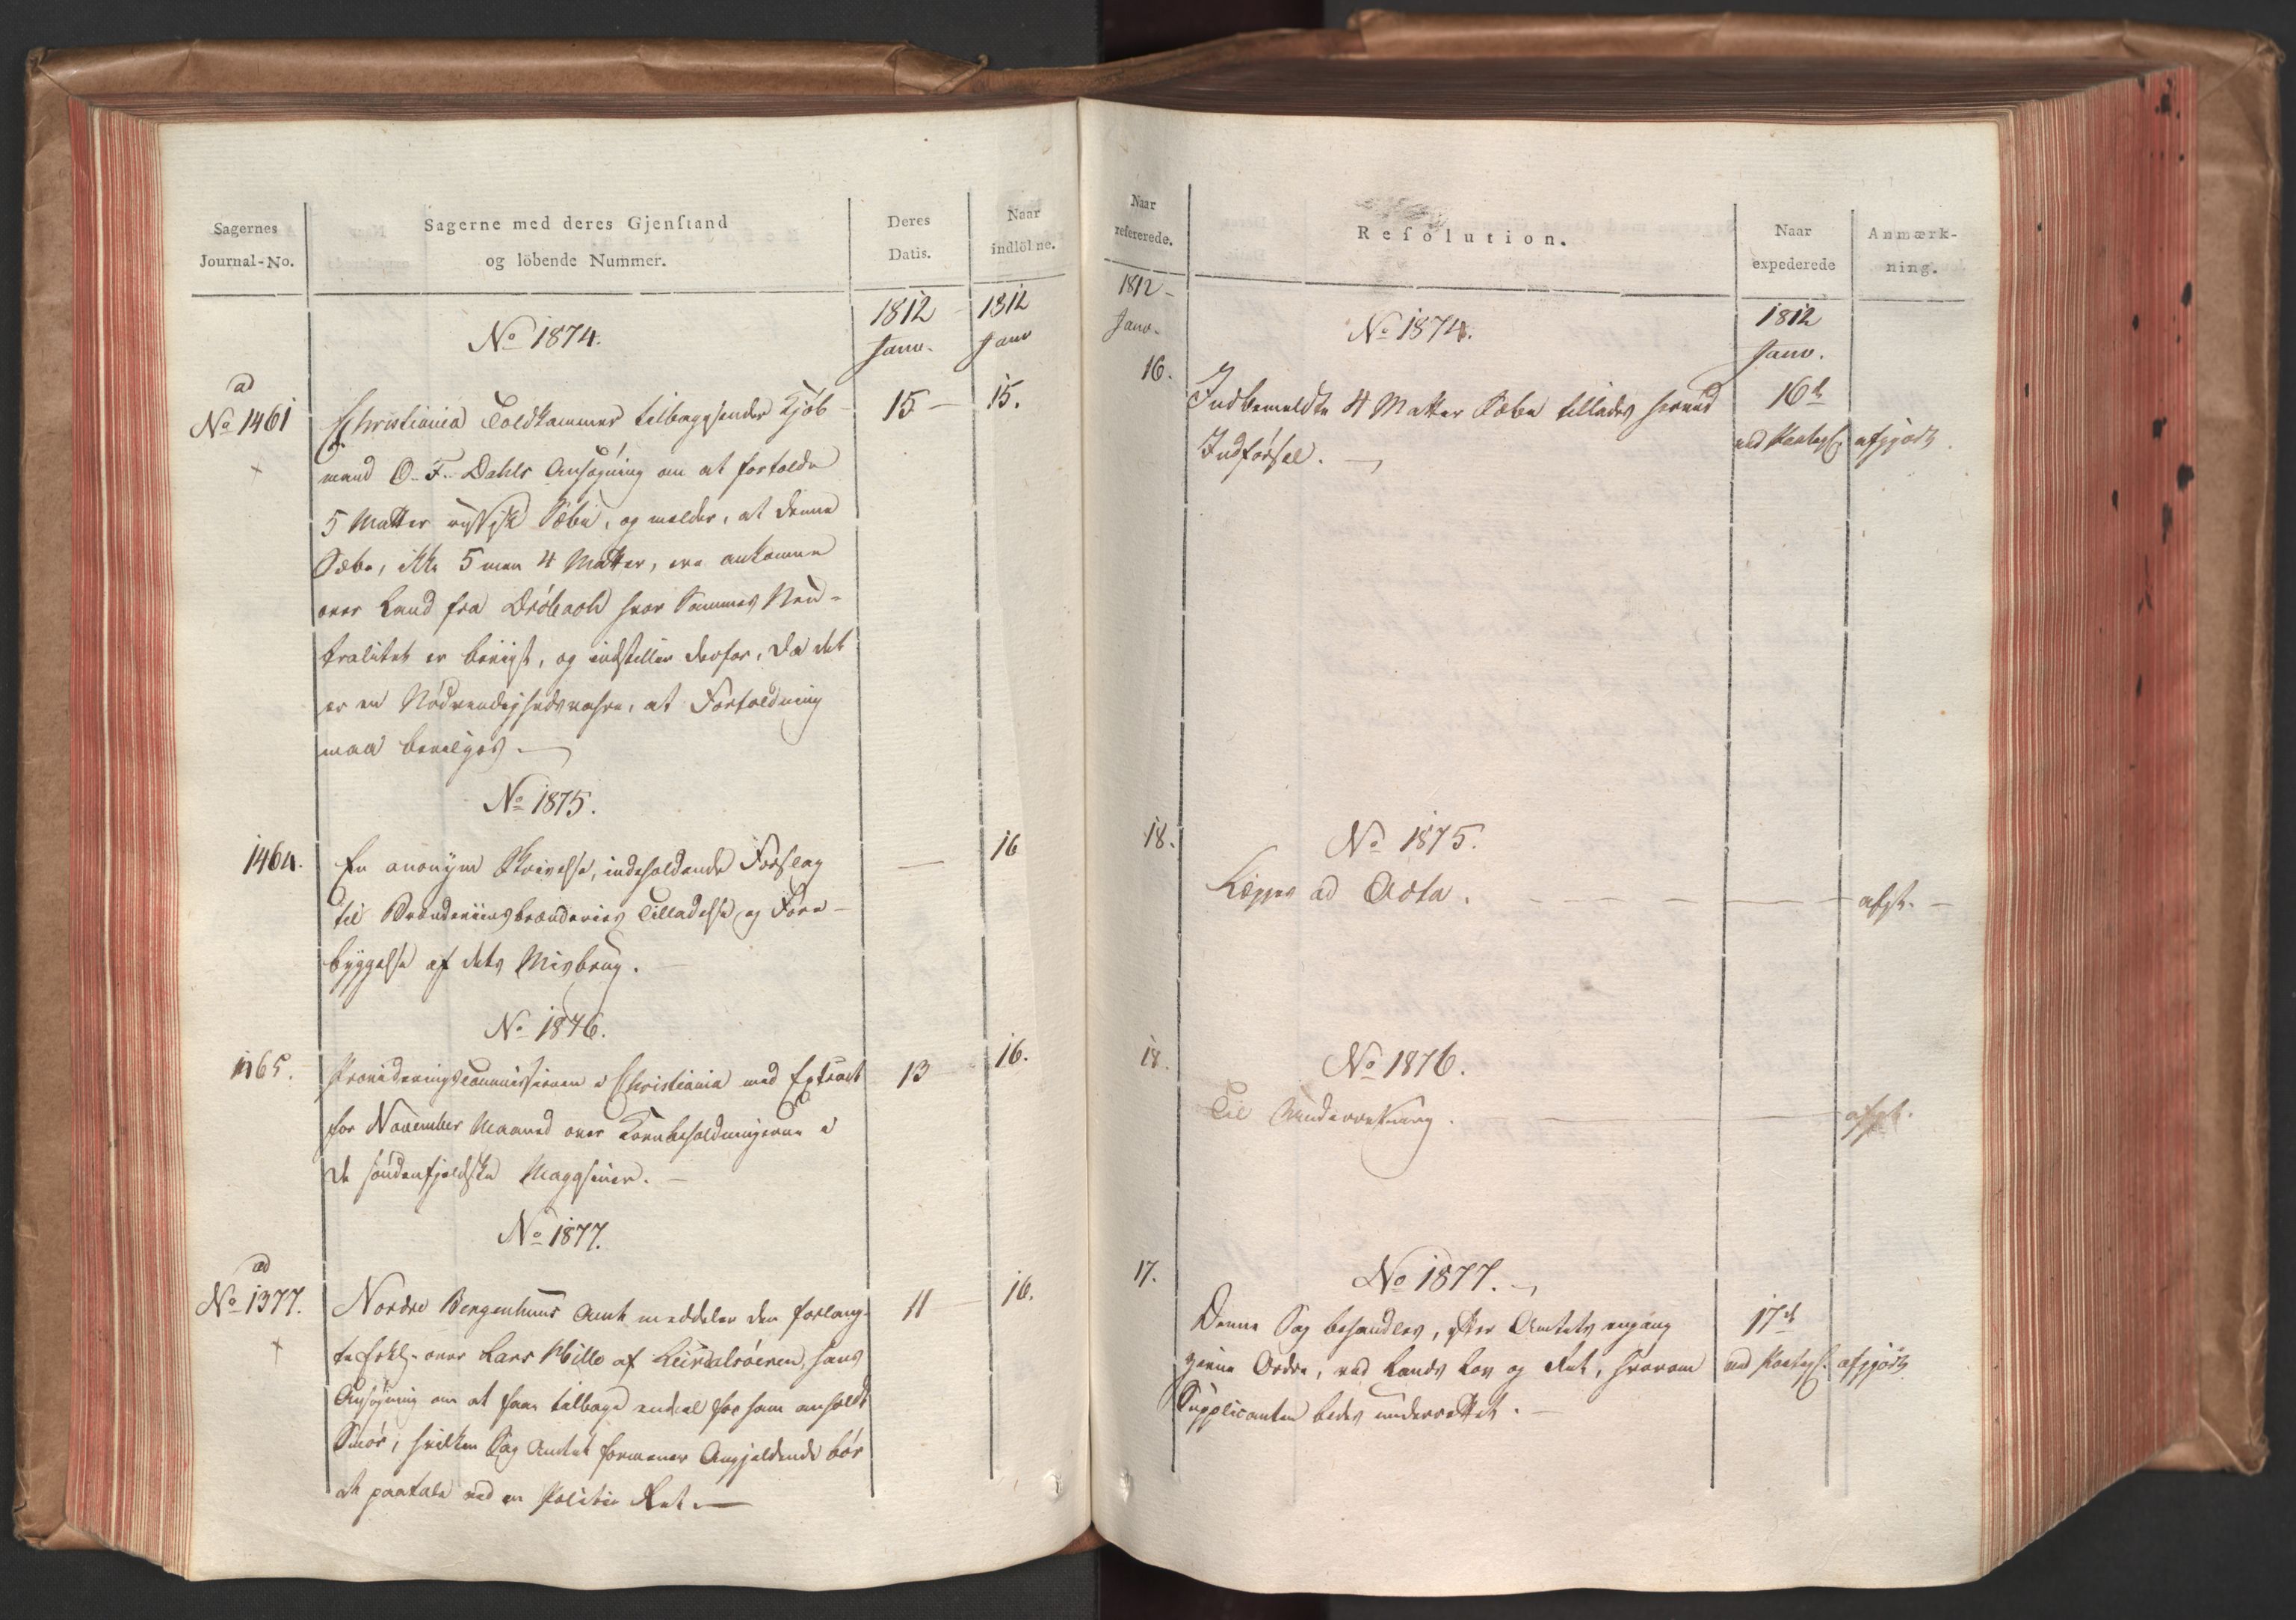 Sagernes
Journal-No.
Sagerne med deres Gjenstand
og löbende Nummer.
Deres
Datis.
Naar
indlöbne.
1812
Janv.
1812
Janv
No 1874.
ad
No 1461
Christiania Toldkammer tilbagesender Kjöb
15 —
15.
mand O. F. Dahls Ansøgning om at fortolde
5 Matter russisk Sæbe, og melder, at denne
Sæbe, ikke 5 men 4 Matter, ere ankomne
over Land fra Dröbach hvor Sammes Neu-
tralitet er beviist, og indstiller derfor, da det
er en Nödvendighedsvahre, at Fortoldning
maa bevilges. —
No 1875.
1464.
En anonym Skrivelse, indeholdende Forslag
—
16
til Brændeviinsbrænderies Tilladelse og Fore-
byggelse af dets Misbrug. —
No 1876.
1465.
Provideringscommissionen i Christiania med Extract
13
16.
for November Maaned over Kornbeholdningerne i
de söndenfjeldske Magasiner. —
No 1877.
ad
No 1377.
Nordre Bergenhuus Amt meddeler den forlang-
11
16.
te Erkl. over Lars Mille af Leirdalsöeren, hans
Ansøgning om at faae tilbage endeel for ham anholdt
Smör, hvilken Sag Amtet formener Angjeldende bör
at paatale ved en Politie Ret. —
Naar
refererede.
Resolution.
Naar
expederede
Anmærk-
ning.
1812
Janv.
1812
Janv.
No 1874.
16.
Indbemeldte 4 Matter Sæbe tillades herved
16de
Indförsel. —
ved Paategn.
afgjort.
18.
No 1875.
Lægges ad Acta. — — — — —
afgt. —
18.
No 1876.
Til Underretning. —
afgt.
17.
No 1877. —
Denne Sag behandles, efter Amtets engang
17de
givne Ordre, ved Lands Lov og Ret, hvorom
ved Paategn.
afgjort
Supplicanten bedes underrettet. —